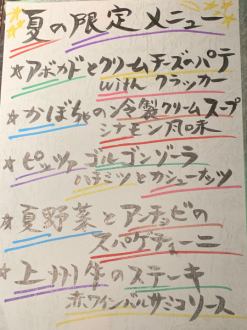 夏の限定メニュー
★アボカドとクリームチーズのパテ
with クラッカー
★かぼちゃの冷製クリームスープ
シナモン風味
★ピッツァ ゴルゴンゾーラ
ハチミツとカシューナッツ
★夏野菜とアンチョビの
スパゲティーニ
★上州牛のステーキ
赤ワインバルサミコソース